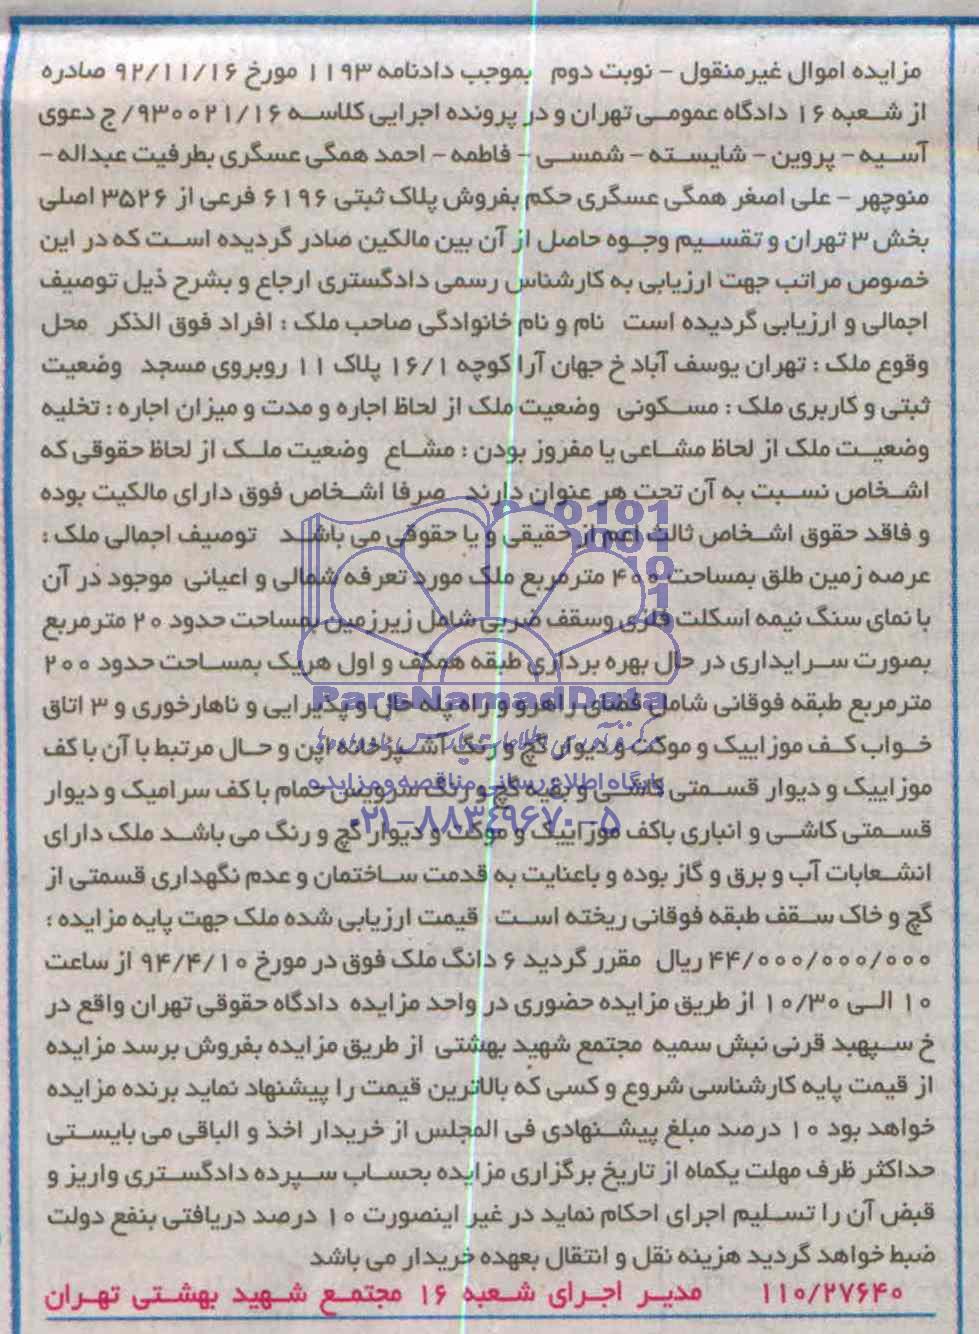 مزایده اموال غیرمنقول – نوبت دوم بموجب دادنامه ۱۱۹۳ مورخ ۹۲/۱۱/۱۶ صادره
از شعبه ۱۶ دادگاه عمومی تهران و در پرونده اجرایی کلاسه ۹۳۰۰۲۱/۱۶/ج دعوی
آسیه – پروین – شایسته – شمسی – فاطمه – احمد همگی عسگری بطرفیت عبداله –
منوچهر – علی اصغر همگی عسگری حکم بفروش پلاک ثبتی ۶۱۹۶ فرعی از ۳۵۲۶ اصلی
بخش ۳ تهران و تقسیم وجوه حاصل از آن بین مالکین صادر گردیده است که در این
خصوص مراتب جهت ارزیابی به کارشناس رسمی دادگستری ارجاع و بشرح ذیل توصیف
اجمالی و ارزیابی گردیده است نام و نام خانوادگی صاحب ملک : افراد فوق الذکر محل
وقوع ملک : تهران یوسف آباد خ جهان آرا کوچه ۱۶/۱ پلاک ۱۱ روبروی مسجد وضعیت
ثبتی و کاربری ملک : مسکونی وضعیت ملک از لحاظ اجاره و مدت و میزان اجاره : تخلیه
وضعیت ملک از لحاظ مشاعی یا مفروز بودن : مشاع وضعیت ملک از لحاظ حقوقی که
اشخاص نسبت به آن تحت هر عنوان دارند صرفا اشخاص فوق دارای مالکیت بوده
و فاقد حقوق اشخاص ثالث اعم از حقیقی و یا حقوقی می باشد توصیف اجمالی ملک :
عرصه زمین طلق بمساحت ۴۰۰ مترمربع ملک مورد تعرفه شمالی و اعیانی موجود در آن
با نمای سنگ نیمه اسکلت فلزی وسقف ضربی شامل زیرزمین بمساحت حدود ۲۰ مترمربع
بصورت سرایداری در حال بهره برداری طبقه همکف و اول هریک بمساحت حدود ۲۰۰
ParsNamadData
مترمربع طبقه فوقانی شامل فضای راهرو و راه پله هال و پذیرایی و ناهارخوری و ۳ اتاق
خواب کف موزاییک و موکت و دیوار گچ و رنگ آشپزخانه اپن و حال مرتبط با آن با کف
پایگاه اطلاع رسانی مناقصه و مزایده
موزاییک و دیوار قسمتی کاشی و بقیه گچ و رنگ سرویس حمام با کف سرامیک و دیوار
۰۲۱-۸۸۳۴۹۶۷۰-۵
قسمتی کاشی و انباری باکف موزاییک و موکت و دیوار گچ و رنگ می باشد ملک دارای
انشعابات آب و برق و گاز بوده و باعنایت به قدمت ساختمان و عدم نگهداری قسمتی از
گچ و خاک سقف طبقه فوقانی ریخته است قیمت ارزیابی شده ملک جهت پایه مزایده :
۴۴/۰۰۰/۰۰۰/۰۰۰ ریال مقرر گردید ۶ دانگ ملک فوق در مورخ ۹۴/۴/۱۰ از ساعت
۱۰ الی ۱۰/۳۰ از طریق مزایده حضوری در واحد مزایده دادگاه حقوقی تهران واقع در
خ سپهبد قرنی نبش سمیه مجتمع شهید بهشتی از طریق مزایده بفروش برسد مزایده
از قیمت پایه کارشناسی شروع و کسی که بالاترین قیمت را پیشنهاد نماید برنده مزایده
خواهد بود ۱۰ درصد مبلغ پیشنهادی فی المجلس از خریدار اخذ و الباقی می بایستی
حداکثر ظرف مهلت یکماه از تاریخ برگزاری مزایده بحساب سپرده دادگستری واریز و
قبض آن را تسلیم اجرای احکام نماید در غیر اینصورت ۱۰ درصد دریافتی بنفع دولت
ضبط خواهد گردید هزینه نقل و انتقال بعهده خریدار می باشد
۱۱۰/۲۷۶۴۰ مدیر اجرای شعبه ۱۶ مجتمع شهید بهشتی تهران